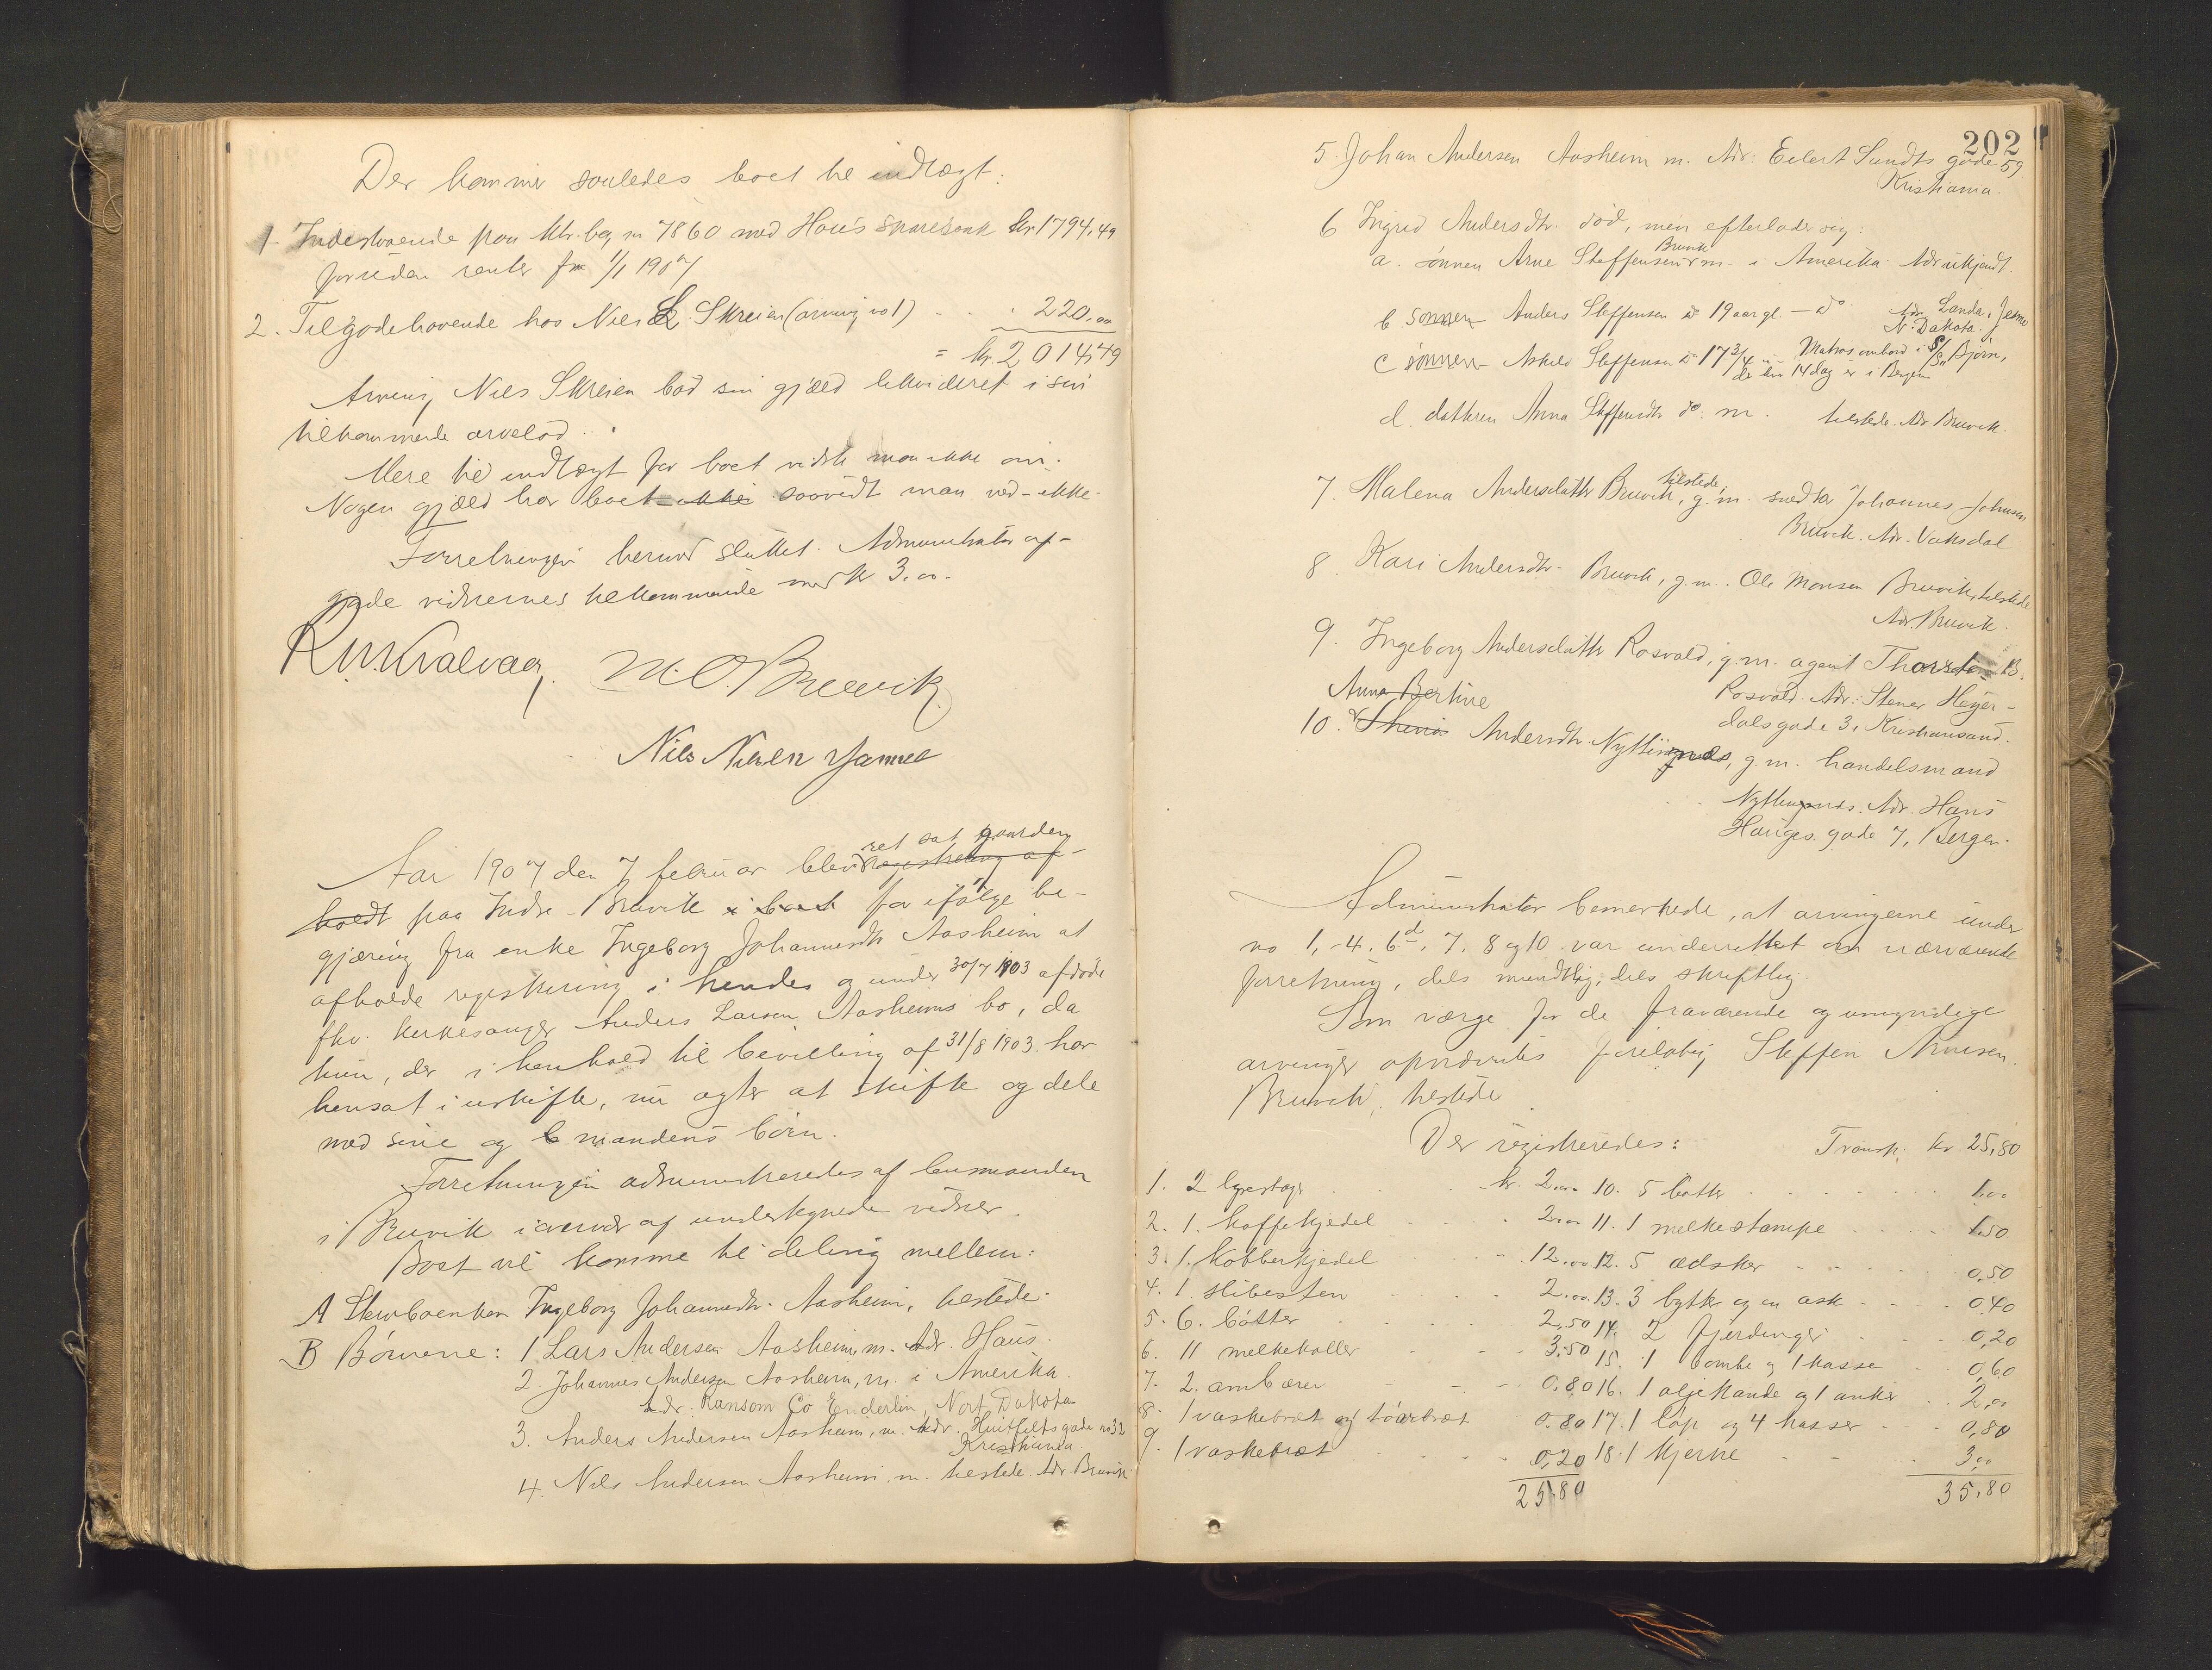 Der kommer saaledes boet til indtægt:
1. Indestaaende paa ktr.bog nr 7860 med Haus Sparebank kr 1794,49
foruden renter fra 1/1 1907
2. Tilgodehavende hos Niels L. Skreien (arving no 1) . . . 220,00
= kr 2014,49
Arving Niels Skreien bad sin gjæld likvideret i sin
tilkommende arvelod.
Mere til indtægt for boet vidste man ikke om.
Nogen gjæld har boet ikke saavidt man ved - ikke.
Forretningen hermed sluttet. Administrator op-
gade vidnernes tilkommende med kr 3.00.
M.O. Bruvik
Nils Nilsen
Aar 1907 den 7 februar blev registrering af-
ret sat paa gaarden
holdt paa Indre-Bruvik i boet for ifølge be-
gjæring fra enke Ingeborg Johannesdtr Aasheim at
afholde registrering i hendes og under 30/7 1903 afdøde
fhv. kirkesanger Anders Larsen Aasheims bo, da
hun, der i henhold til bevilling af 31/8 1903 har
hensat i uskifte, nu agter at skifte og dele
med sine og mandens børn.
Forretningen administreredes af lensmanden
i Bruvik i overvær af undertegnede vidner.
Boet vil komme til deling mellem:
A Sterboenken Ingeborg Johannesdtr. Aasheim, tilstede.
B Børnene: 1 Lars Andersen Aasheim, m. Adr. Haus.
2 Johannes Andersen Aasheim, m. i Amerika.
Adr. Ransom Co Enderlin, Nort Dakota
3. Anders Andersen Aasheim, m. Adr. Huitfeltsgade no 32
Kristiania.
4. Nils Andersen Aasheim, m. tilstede. Adr. Bruvik
202
5. Johan Andersen Aasheim m. Adr: Eilert Sundts gade 59
Kristiania.
6 Ingrid Andersdtr. død, men efterlader sig:
Bruvik
a. sønnen Arne Steffensen m. i Amerika Adr ukjendt.
b. sønnen Anders Steffensen 19 aar gl. - do Adr. Landa,
N. Dakota.
c sønnen Askild Steffensen 17 3/4 Matros ombord i S/S Bjørn,
der om 14 dag er i Bergen
d. datteren Anna Steffensdtr do. m. tilstede. Adr Bruvik.
7. Malena Andersdatter Bruvik, tilstede, g. m. snedker Johannes Johnsen
Bruvik. Adr. Vaksdal
8. Kari Andersdtr. Bruvik, g. m. Ole Monsen Bruvik, tilstede
Adr. Bruvik.
9. Ingeborg Andersdatter Rosvold, g. m. agent Thorstein B.
Rosvold. Adr: Stener Heyer-
dals gade 3, Kristiansand.
Anna Bertine
10. Andersdtr. Nyttingnes, g. m. handelsmand
Nyttingnes. Adr. Hans
Hauges gade 7, Bergen.
Administrator bemerkede, at arvingerne under
no 1, 4, 6d, 7, 8 og 10 var underrettet om nærværende
forretning, dels mundtlig, dels skriftlig.
Som værge for de fraværende og umyndige
arvinger opnævntes foreløbig Steffen Arnesen
Bruvik, tilstede.
Der registreredes: Transp. kr. 25,80
1. 2 lysestager . . . kr. 2.00 10. 5 bøtter . . . 1.00
2. 1 kaffekjedel . . . 2.00 11. 1 melkestampe . . . 1.50
3. 1 kobberkjedel . . . 12.00 12. 5 æsker . . . 0,50
4. 1 slibesten . . . 2.00 13. 3 bytter og en ask . . . 0,40
5. 6 bøtter . . . 2,50 14. 2 fjerdinger . . . 0,20
6. 11 melkekoller . . . 3.50 15. 1 bombe og 1 kasse . . . 0,60
7. 2 ambærer . . . 0.80 16. 1 oljekande og 1 anker . . . 2,00
8. 1 vaskebræt og tvarbræt 0.80 17. 1 løp og 4 kasser . . . 0,80
9. 1 vaskebræt . . . 0,20 18. 1 kjerne . . . 3,00
25,80 35,80